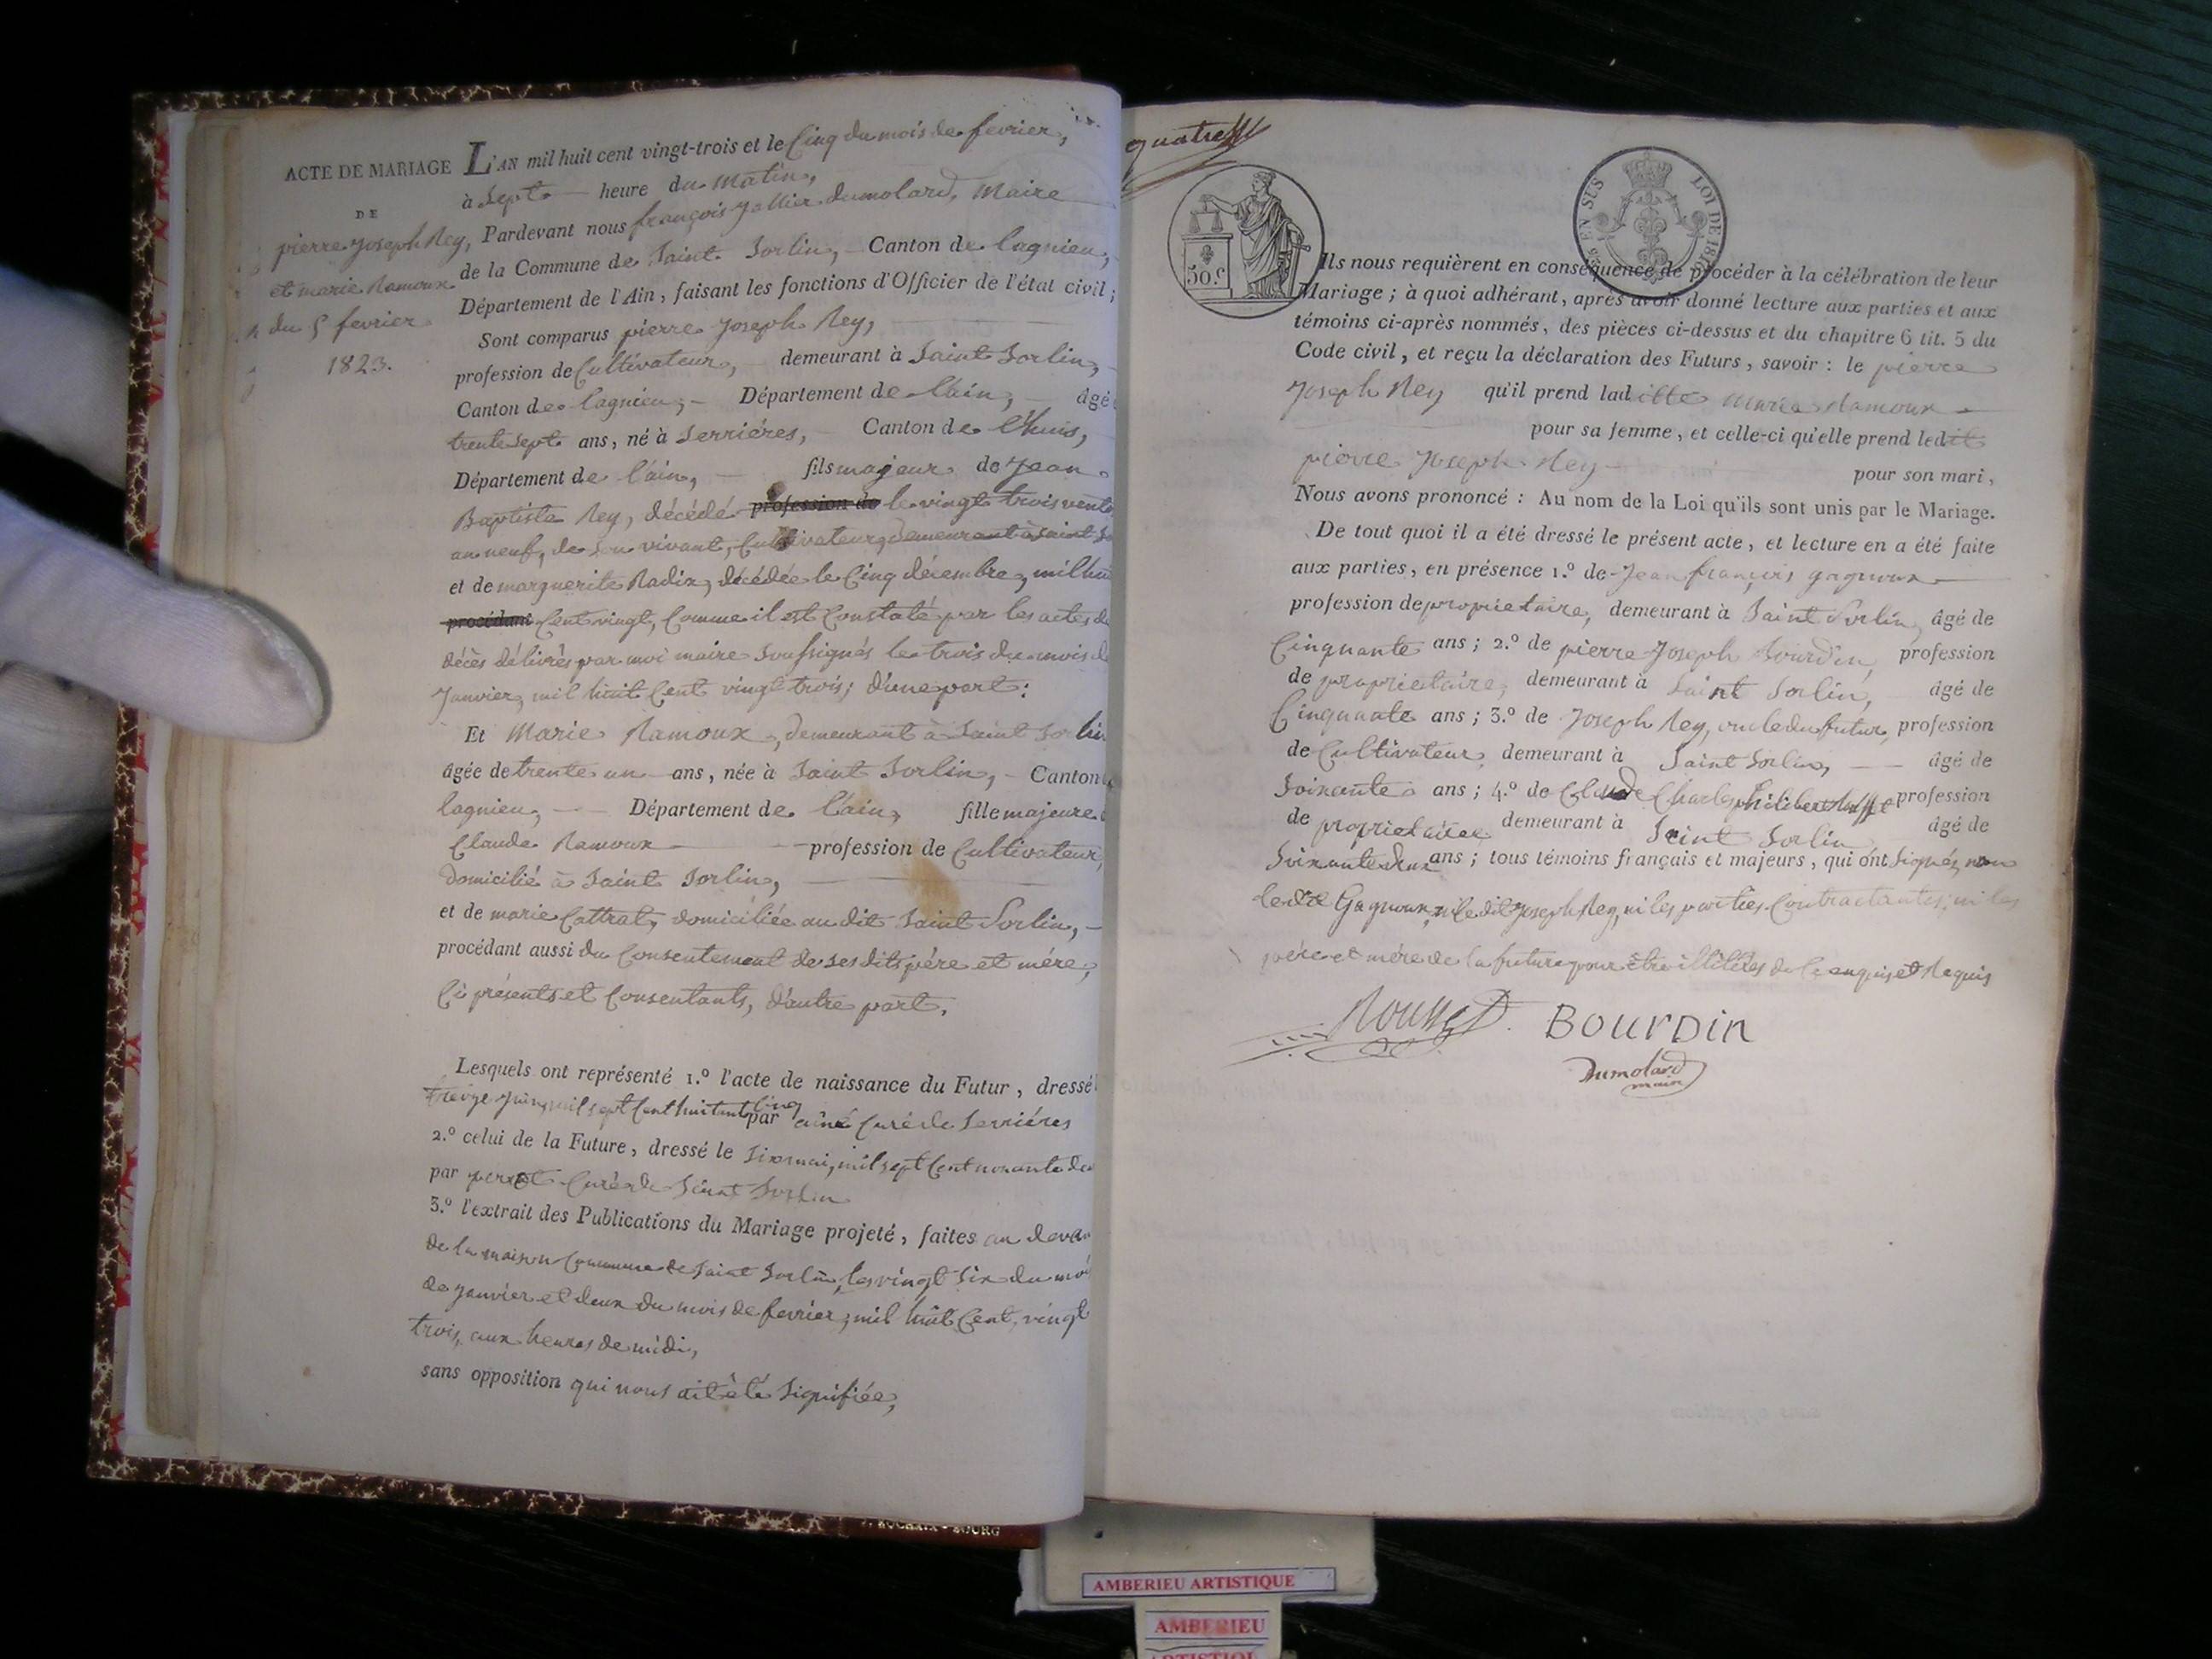 ACTE DE MARIAGE
DE
pierre Joseph Rey,
et marie Ramoux
du 5 fevrier
1823.
L'AN mil huit cent vingt-trois et le Cinq du mois de fevrier,
à Sept heure du Matin,
Pardevant nous françois Jallier dumolard, Maire
de la Commune de Saint Sorlin, Canton de lagnieu,
Département de l'Ain, faisant les fonctions d'Officier de l'état civil;
Sont comparus pierre Joseph Rey,
profession de Cultivateur, demeurant à Saint Sorlin,
Canton de lagnieu, Département de lain, âgé
trente sept ans, né à Serriéres, Canton de l'huis,
Département de l'ain, fils majeur de Jean
Baptiste Rey, décédé profession de le vingt trois vento
an neuf, de son vivant, Cultivateur, demeurant à Saint So
et de marguerite Radix, décédée le Cinq décembre, mil hui
procédant Cent vingt, Comme il est Constaté par les actes de
décès délivrés par moi maire Soussignés le trois du mois de
Janvier, mil huit Cent vingt trois; d'une part:
Et Marie Ramoux, demeurant à Saint Sorlin
âgée de trente un ans, née à Saint Sorlin, Canton
lagnieu, Département de l'ain, fille majeure
Claude Ramoux profession de Cultivateur,
domicilié à Saint Sorlin,
et de marie Cattrat, domiciliée au dit Saint Sorlin,
procédant aussi du Consentement de ses dits pére et mére,
Ci présents et Consentants, d'autre part.
Lesquels ont représenté 1.º l'acte de naissance du Futur, dressé
treize Juin, mil sept Cent huitante cinq par aîné Curé de Serriéres
2.º celui de la Future, dressé le Six mai, mil sept Cent nonante de
par perrot Curé de Saint Sorlin
3.º l'extrait des Publications du Mariage projeté, faites au devan
de la maison Commune de Saint Sorlin, les vingt Six du moi
de Janvier et deux du mois de fevrier, mil huit Cent, vingt
trois, aux heures de midi,
sans opposition qui nous ait été Signifiée,
quatre
50 c
EN SUS LOI DE 1816
Ils nous requièrent en conséquence de procéder à la célébration de leur
Mariage; à quoi adhérant, après avoir donné lecture aux parties et aux
témoins ci-après nommés, des pièces ci-dessus et du chapitre 6 tit. 5 du
Code civil, et reçu la déclaration des Futurs, savoir: le pierre
Joseph Rey qu'il prend laditte Marie Ramoux
pour sa femme, et celle-ci qu'elle prend ledit
pierre Joseph Rey pour son mari,
Nous avons prononcé: Au nom de la Loi qu'ils sont unis par le Mariage.
De tout quoi il a été dressé le présent acte, et lecture en a été faite
aux parties, en présence 1.º de Jean françois gagnoux
profession de proprietaire, demeurant à Saint Sorlin, âgé de
Cinquante ans; 2.º de pierre Joseph Bourdin, profession
de proprietaire, demeurant à Saint Sorlin, âgé de
Cinquante ans; 3.º de Joseph Rey, oncle du futur, profession
de Cultivateur, demeurant à Saint Sorlin, âgé de
Soixante ans; 4.º de Claude Charles philibert profession
de proprietaire demeurant à Saint Sorlin âgé de
Soixante deux ans; tous témoins français et majeurs, qui ont Signés, non
ledit Gagnoux, ni le dit Joseph Rey, ni les parties Contractantes; ni les
pére et mére de la future pour être illitérés de Ce enquis et Requis
Rousset. BOURDIN
Dumolard
maire
BOURG
AMBERIEU ARTISTIQUE
AMBERIEU
ARTISTIQUE